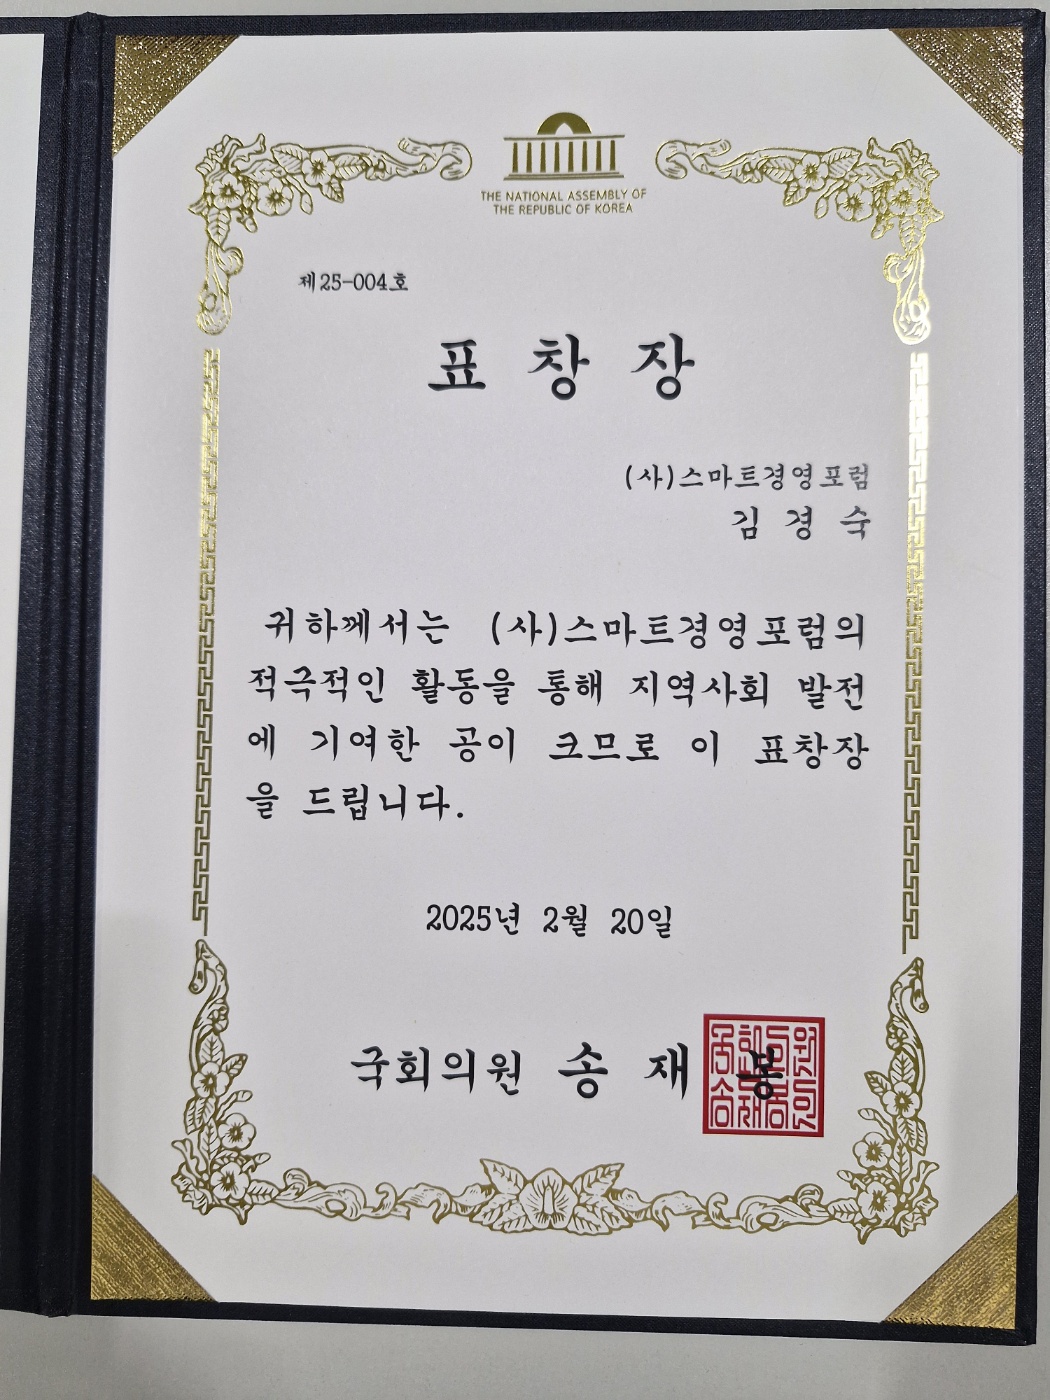 THE NATIONAL ASSEMBLY OF
THE REPUBLIC OF KOREA
제25-004호
표 창 장
(사)스마트경영포럼
김 경 숙
귀하께서는 (사)스마트경영포럼의
적극적인 활동을 통해 지역사회 발전
에 기여한 공이 크므로 이 표창장
을 드립니다.
2025년 2월 20일
국회의원 송 재 봉